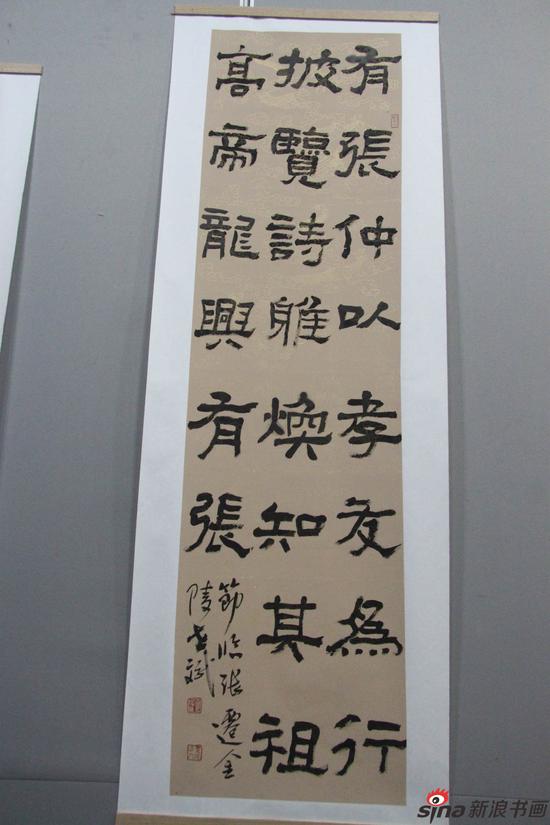 有張仲以孝友為行
披覽詩雅煥知其祖
高帝龍興有張
節臨張遷金
陵斌
sina新浪书画